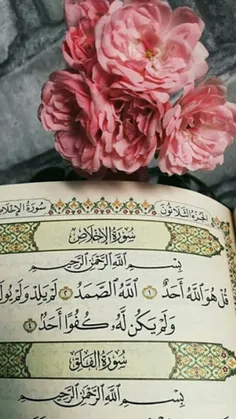 الجزء الثلاثون سورة الإخلاص
سُورَةُ الإِخْلَاصِ
بِسْمِ اللَّهِ الرَّحْمَٰنِ الرَّحِيمِ
قُلْ هُوَ اللَّهُ أَحَدٌ ١ اللَّهُ الصَّمَدُ ٢ لَمْ يَلِدْ وَلَمْ يُولَ
وَلَمْ يَكُن لَّهُ كُفُوًا أَحَدٌ ٤
سُورَةُ الفَلَقِ
بِسْمِ اللَّهِ الرَّحْمَٰنِ الرَّحِيمِ